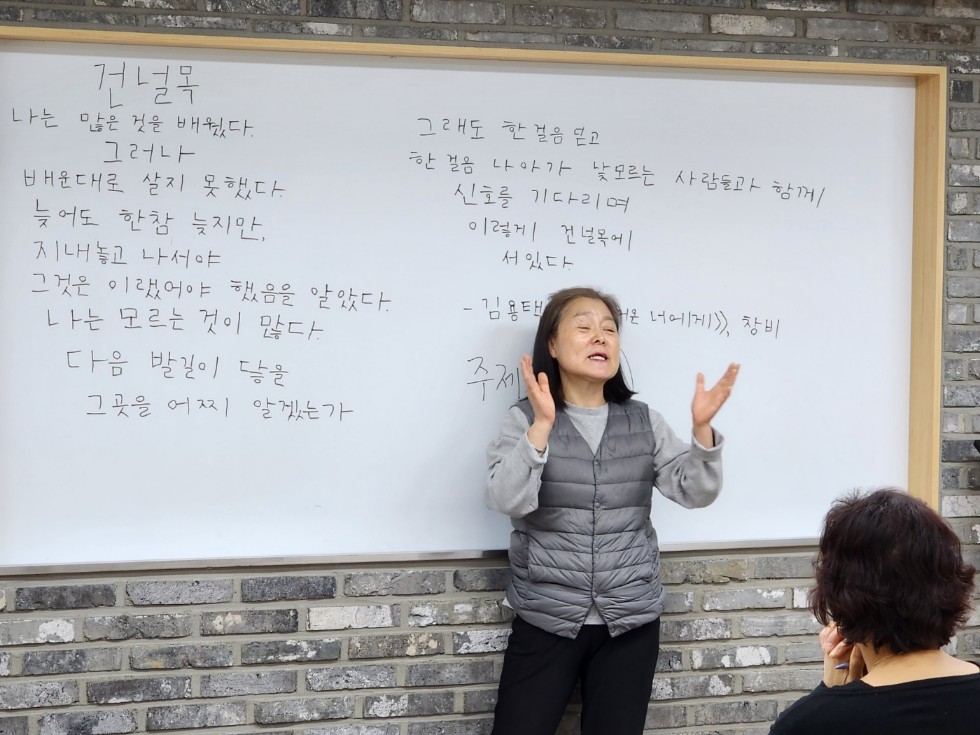 건널목
나는 많은 것을 배웠다.
그러나
배운대로 살지 못했다.
늦어도 한참 늦지만,
지내놓고 나서야
그것은 이랬어야 했음을 알았다.
나는 모르는 것이 많다.
다음 발길이 닿을
그곳을 어찌 알겠는가
그래도 한걸음 딛고
한 걸음 나아가 낯모르는 사람들과 함께
신호를 기다리며
이렇게 건널목에
서 있다.
- 김용택 너에게》, 창비
주제